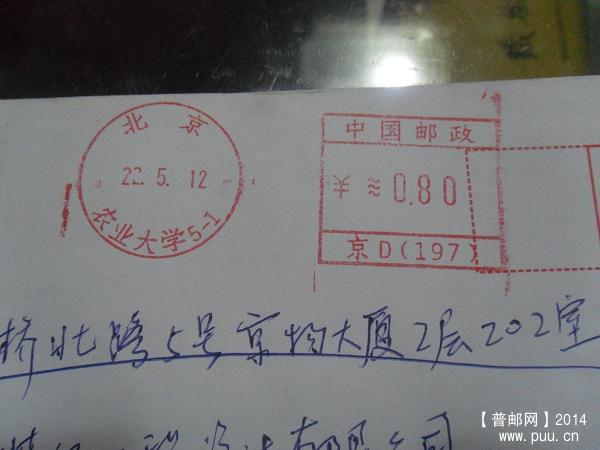 北京
22.5.12
农业大学5-1
中国邮政
0.80
京D(197)
桥北湾5号京物大厦2层202室
有限公司
【普邮网】2014
www.puu.cn